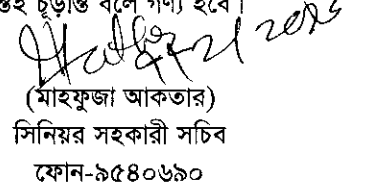 চূড়ান্ত বলে গণ্য হবে।
(মাহফুজা আকতার)
সিনিয়র সহকারী সচিব
ফোন-৯৫৪০৬৯০